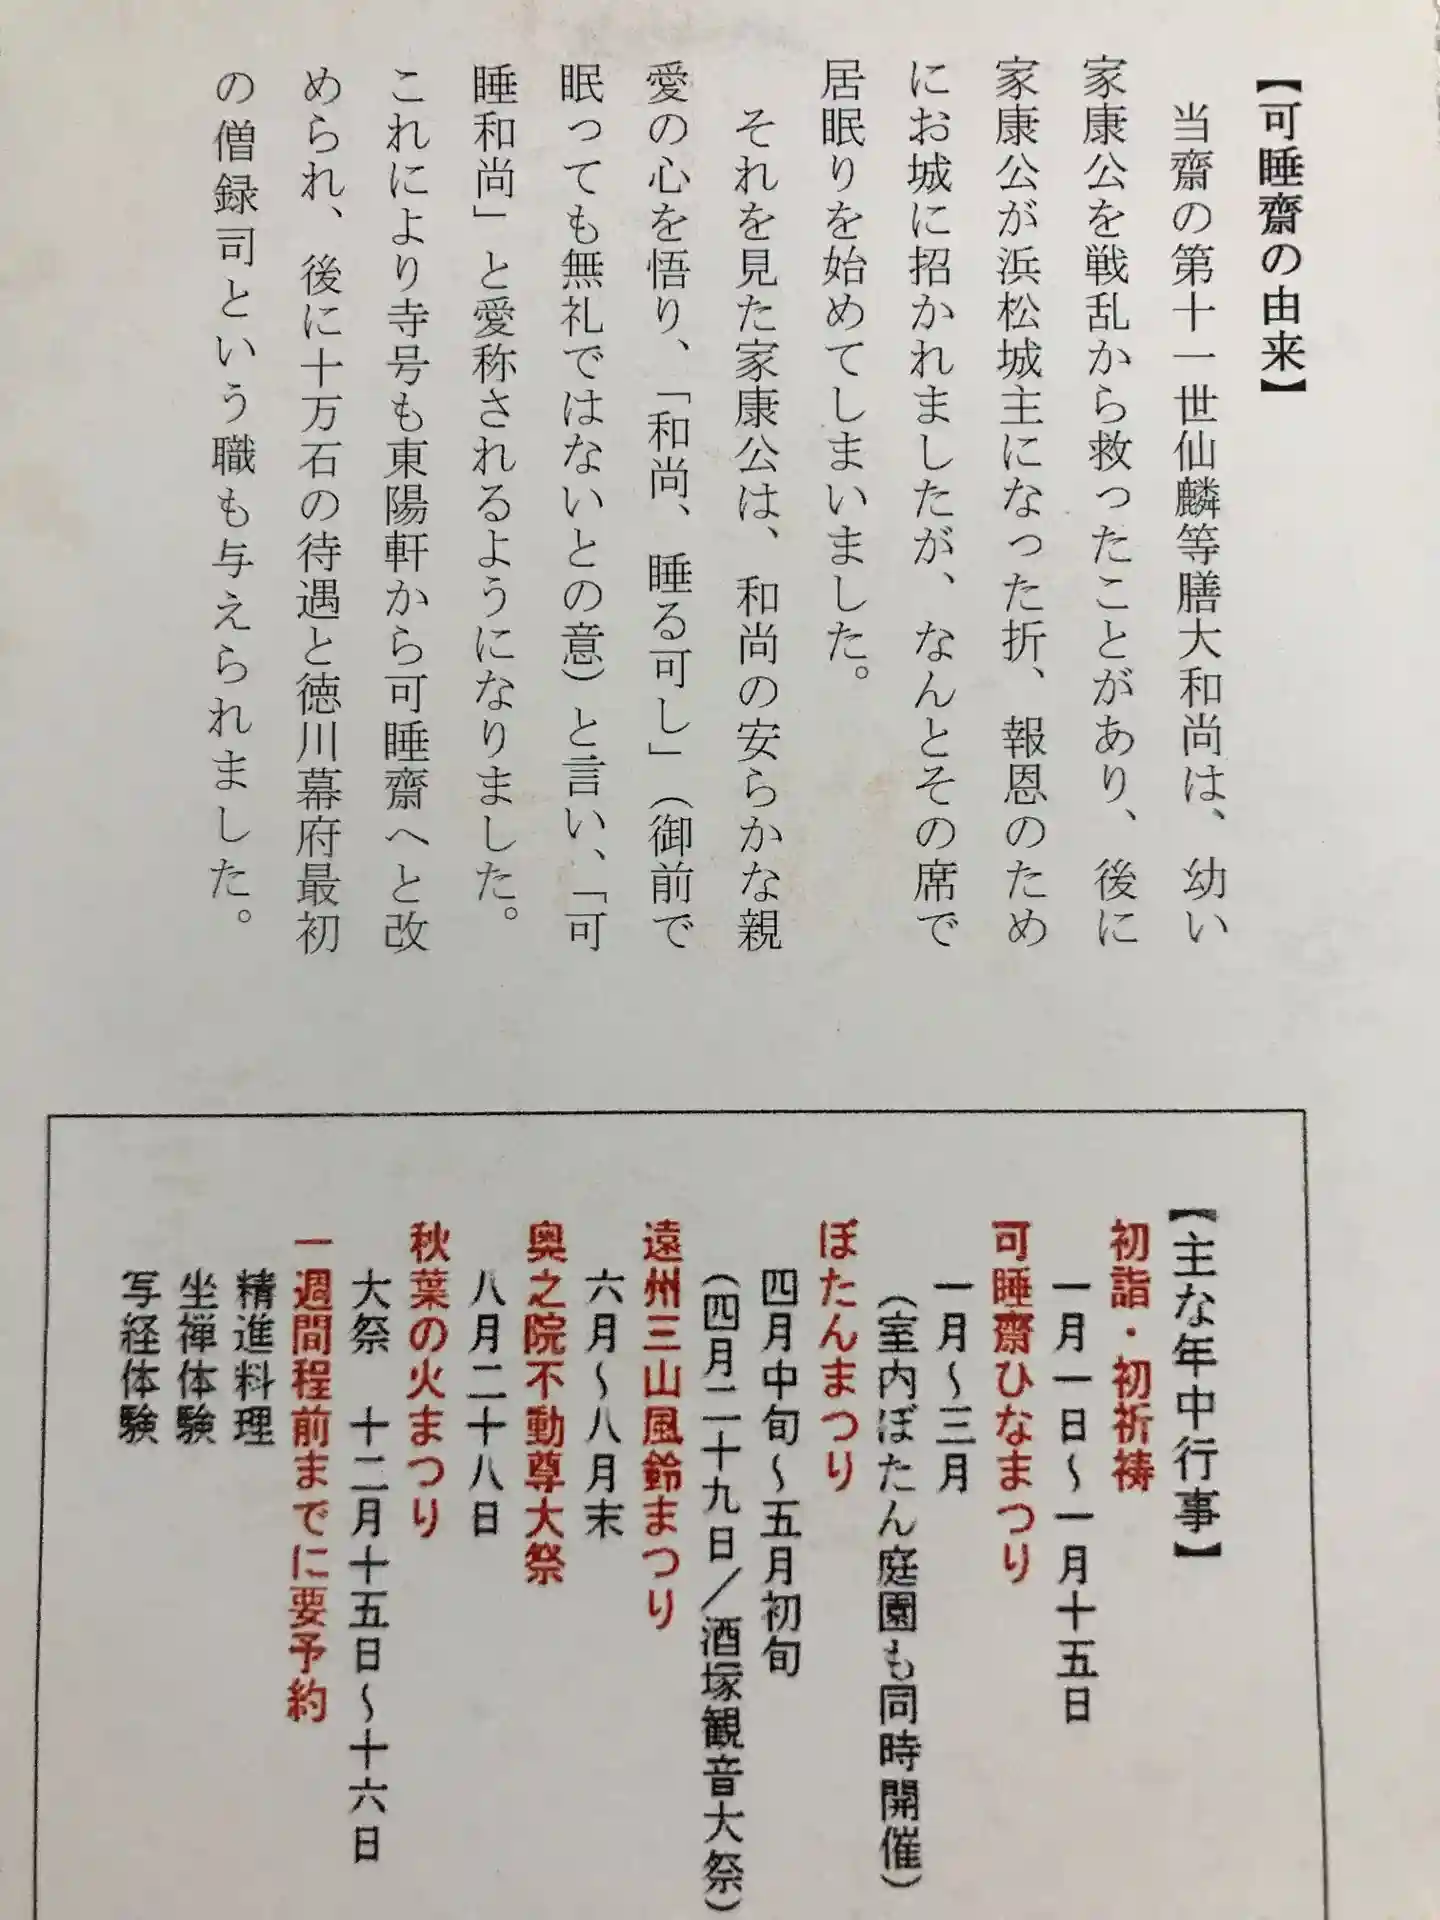 【可睡齋の由来】
当齋の第十一世仙麟等膳大和尚は、幼い
家康公を戦乱から救ったことがあり、後に
家康公が浜松城主になった折、報恩のため
にお城に招かれましたが、なんとその席で
居眠りを始めてしまいました。
それを見た家康公は、和尚の安らかな親
愛の心を悟り、「和尚、睡る可し」（御前で
眠っても無礼ではないとの意）と言い、「可
睡和尚」と愛称されるようになりました。
これにより寺号も東陽軒から可睡齋へと改
められ、後に十万石の待遇と徳川幕府最初
の僧録司という職も与えられました。
【主な年中行事】
初詣・初祈祷
一月一日～一月十五日
可睡齋ひなまつり
一月～三月
（室内ぼたん庭園も同時開催）
ぼたんまつり
四月中旬～五月初旬
（四月二十九日／酒塚観音大祭）
遠州三山風鈴まつり
六月～八月末
奥之院不動尊大祭
八月二十八日
秋葉の火まつり
大祭　十二月十五日～十六日
一週間程前までに要予約
精進料理
坐禅体験
写経体験